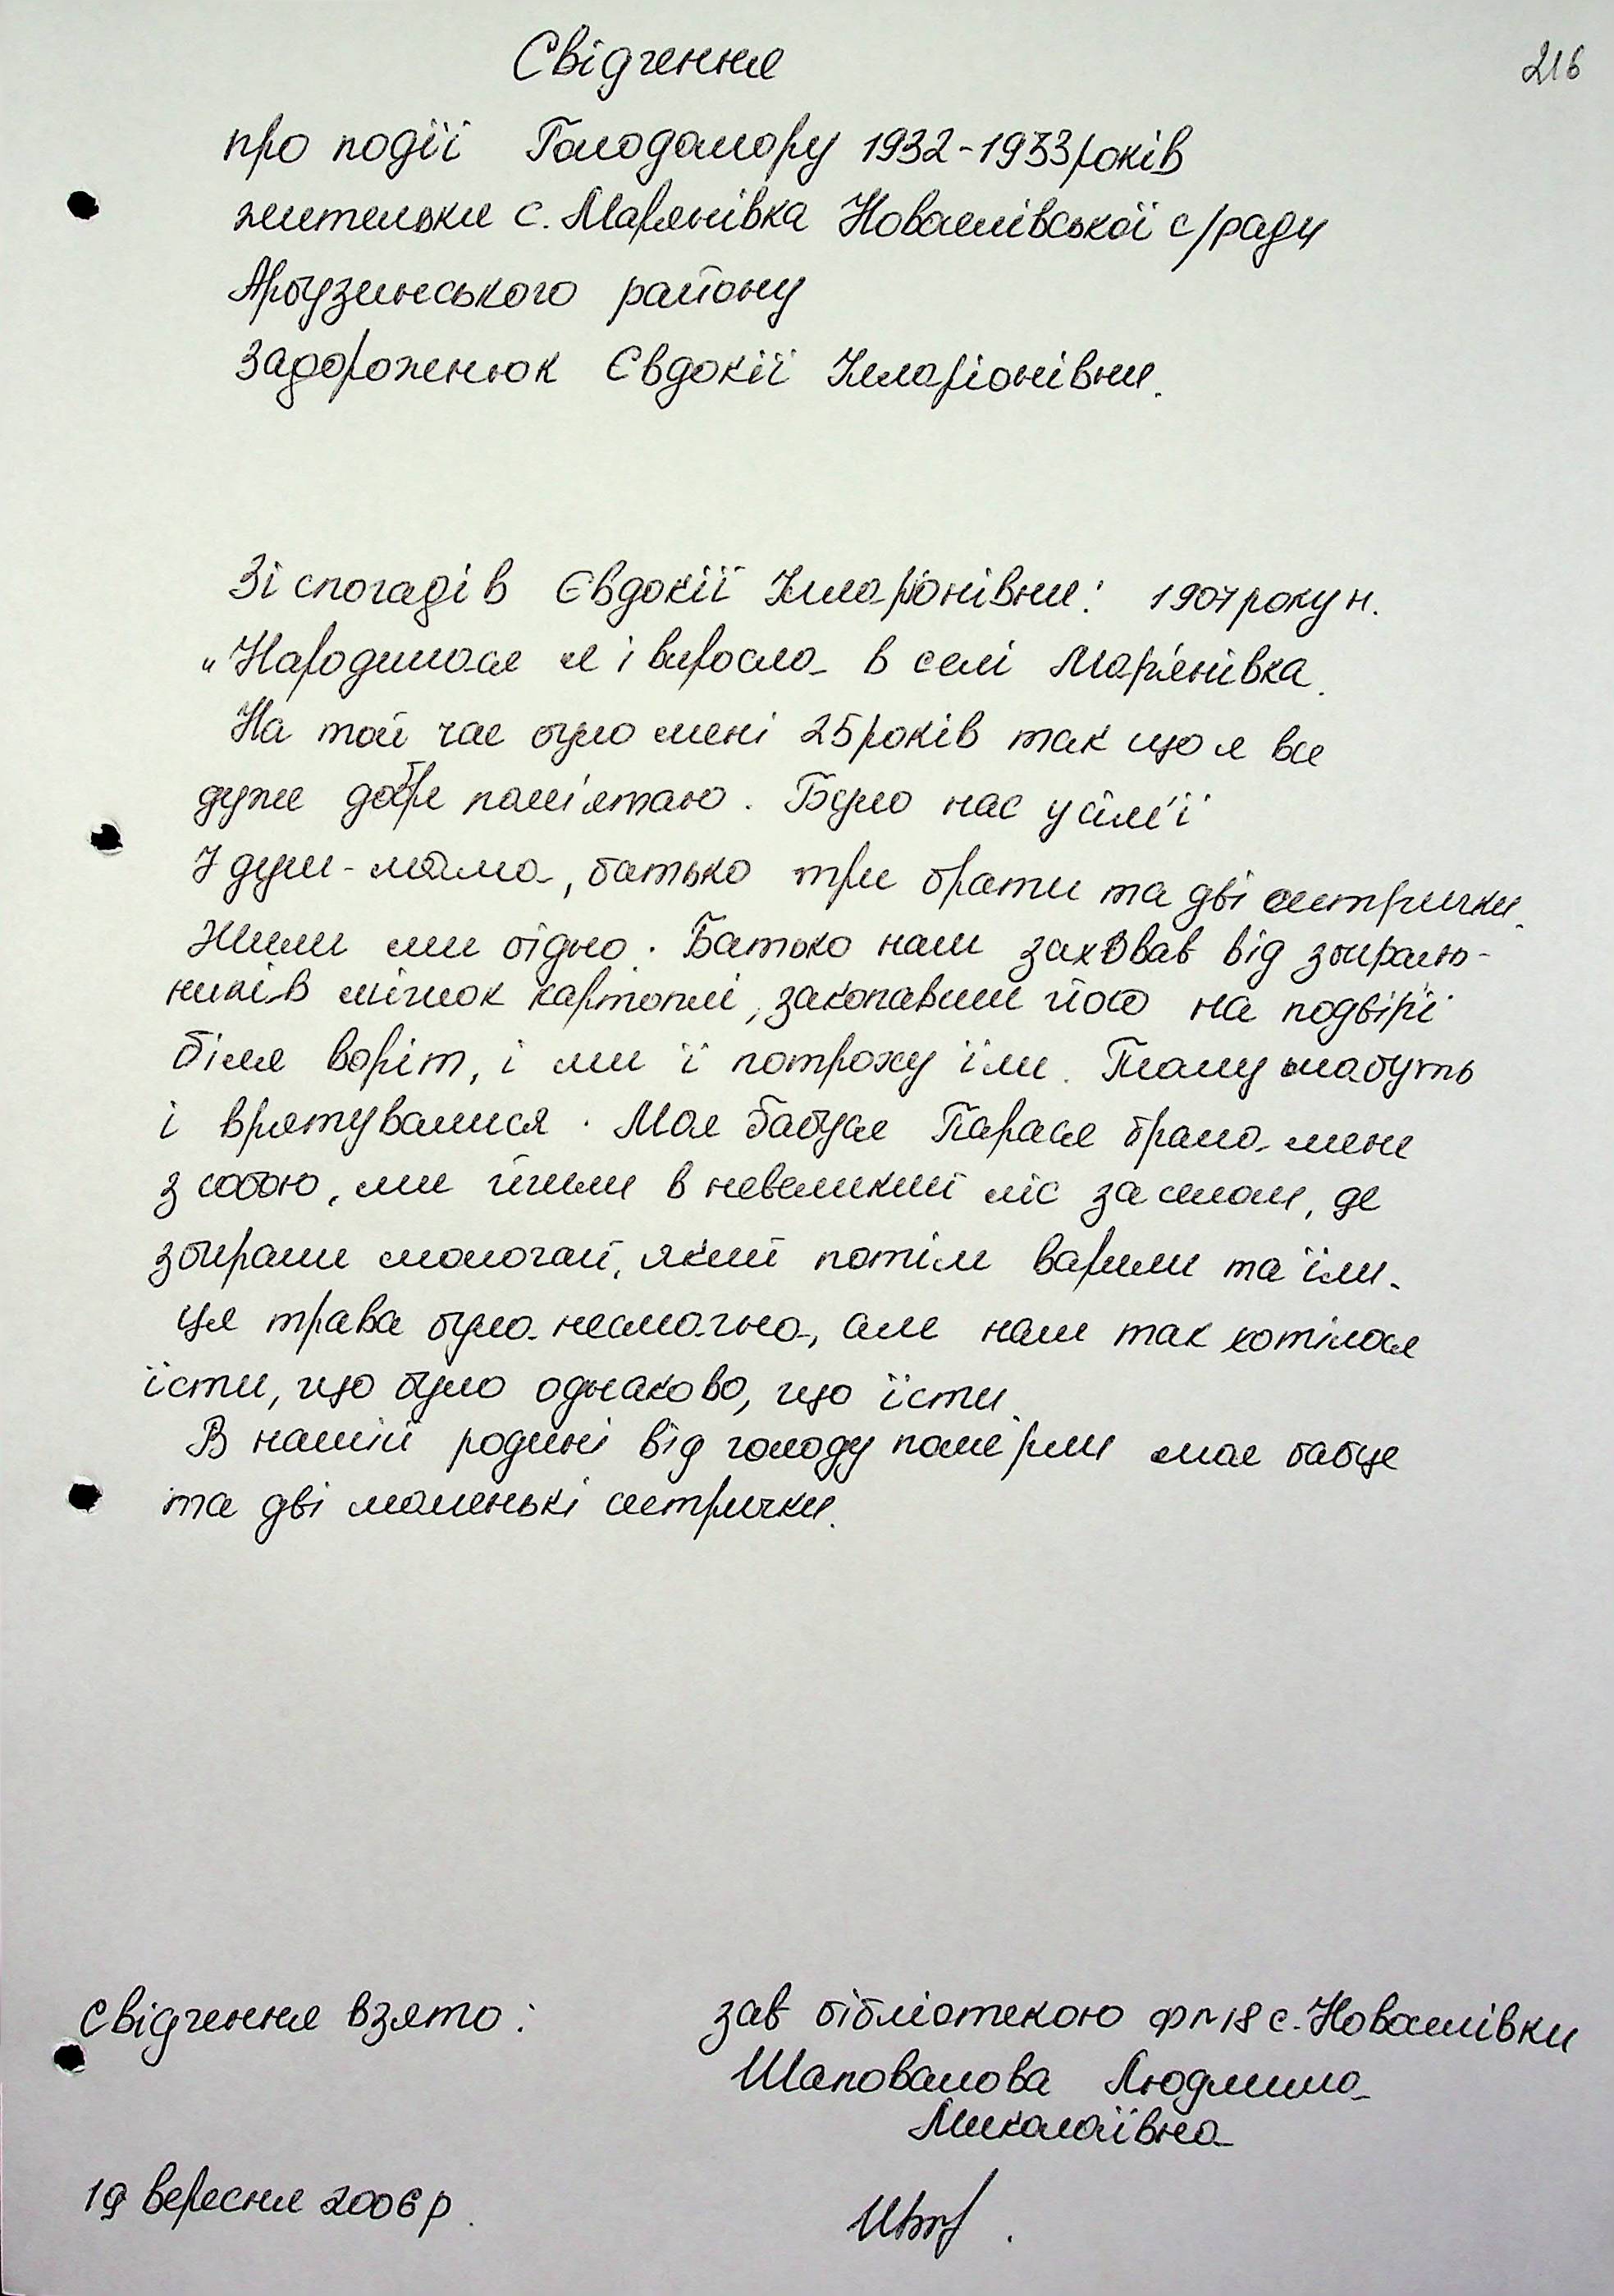 216
Свідчення
про події Голодомору 1932-1933 років
жительки с. Мар'янівка Новоселівської с/ради
Арбузинського району
Задороженюк Євдокії Іларіонівни.
Зі спогадів Євдокії Іларіонівни: 1907 року н.
„Народилася я і виросла в селі Мар'янівка.
На той час було мені 25 років так що я все
дуже добре пам'ятаю. Було нас у сім'ї
7 душ - мама, батько три брати та дві сестрички.
Жили ми бідно. Батько наш заховав від збираль-
ників мішок картоплі, закопавши його на подвір'ї
біля воріт, і ми її потроху їли. Тому мабуть
і врятувалися. Моя бабуся Парася брала мене
з собою, ми йшли в невеликий ліс за селом, де
збирали молочай, який потім варили та їли.
Ця трава була несмачна, але нам так хотілося
їсти, що було однаково, що їсти.
В нашій родині від голоду померли моя бабця
та дві маленькі сестрички.
Свідчення взято: зав бібліотекою ф№18 с. Новоселівки
Шаповалова Людмила
Миколаївна
19 вересня 2006 р.